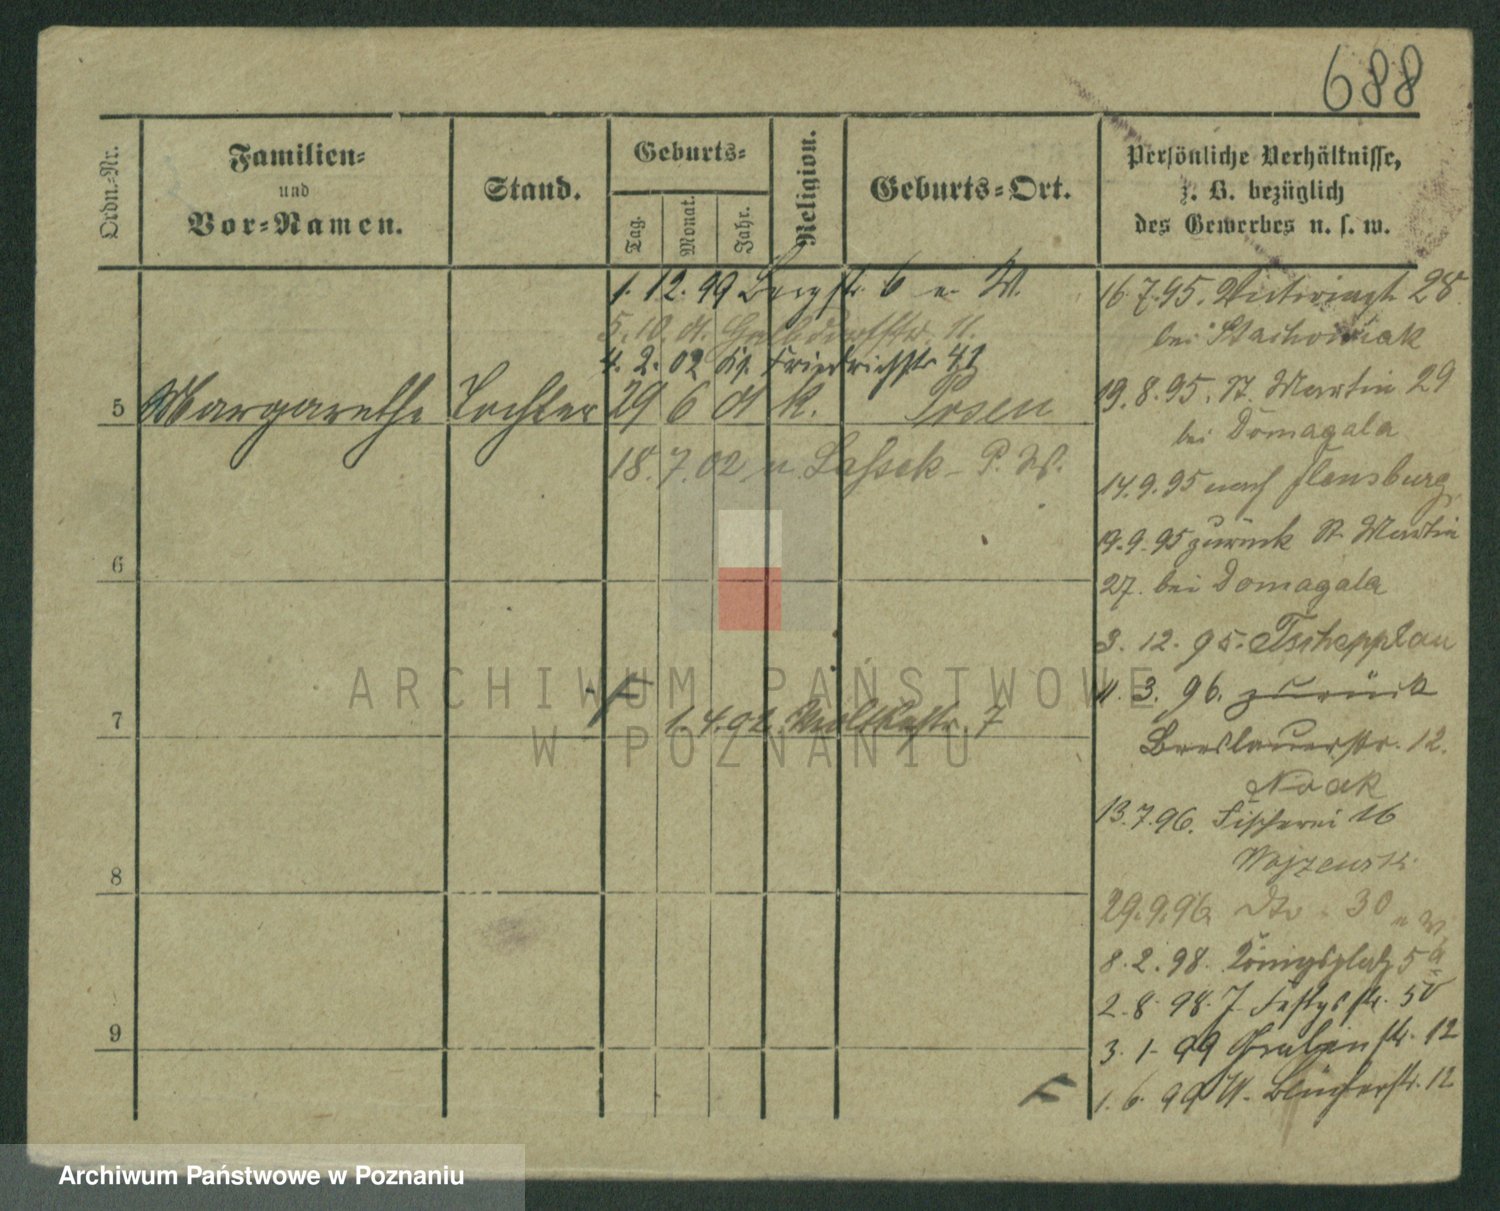 688
Ordn.-Nr.
Familien-
und
Vor-Namen.
Stand.
Geburts-
Tag.
Monat.
Jahr.
Religion.
Geburts-Ort.
Persönliche Verhältnisse,
z. B. bezüglich
des Gewerbes u. s. w.
1. 12. 99 Bergstr. 6 n. W.
5. 10. 01.
4. 2. 02 Kl. Friedrichstr. 41
5 Margarethe Tochter 29 6 01 k. Posen
18. 7. 02 n. Lassek - P. W.
6
7
F
1. 4. 02. Moltkestr. 7
8
9
16. 7. 95. 28
bei Stachowiak
19. 8. 95. St. Martin 29
bei Domagala
14. 9. 95 nach Flensburg
19. 9. 95 zurück St. Martin
27. bei Domagala
3. 12. 95. Tscheppلau
11. 3. 96. zurück
Breslauerstr. 12.
Noak
13. 7. 96. Fischerei 16
29. 9. 96. dto. 30 n W.
8. 2. 98. Königsplatz 5a
2. 8. 98.
3. 1. 99 Grabenstr. 12
F
1. 6. 99 Blücherstr. 12
ARCHIWUM PAŃSTWOWE
W POZNANIU
Archiwum Państwowe w Poznaniu